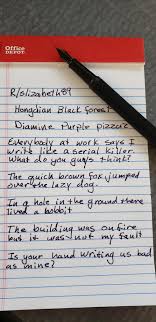 Office
DEPOT
R/slizabeth89
Hongdian Black forest
Diamine Purple pizzazz
Everybody at work says I
write like a serial killer.
What do you guys think?
The quick brown fox jumped
over the lazy dog.
In a hole in the ground there
lived a hobbit
The building was on fire
but it was not my fault
Is your hand writing as bad
as mine?